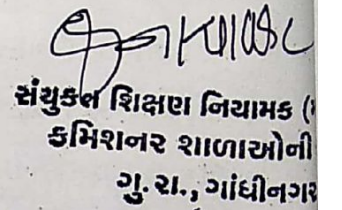 સંયુક્ત શિક્ષણ નિયામક (
કમિશનર શાળાઓની
ગુ.રા., ગાંધીનગર